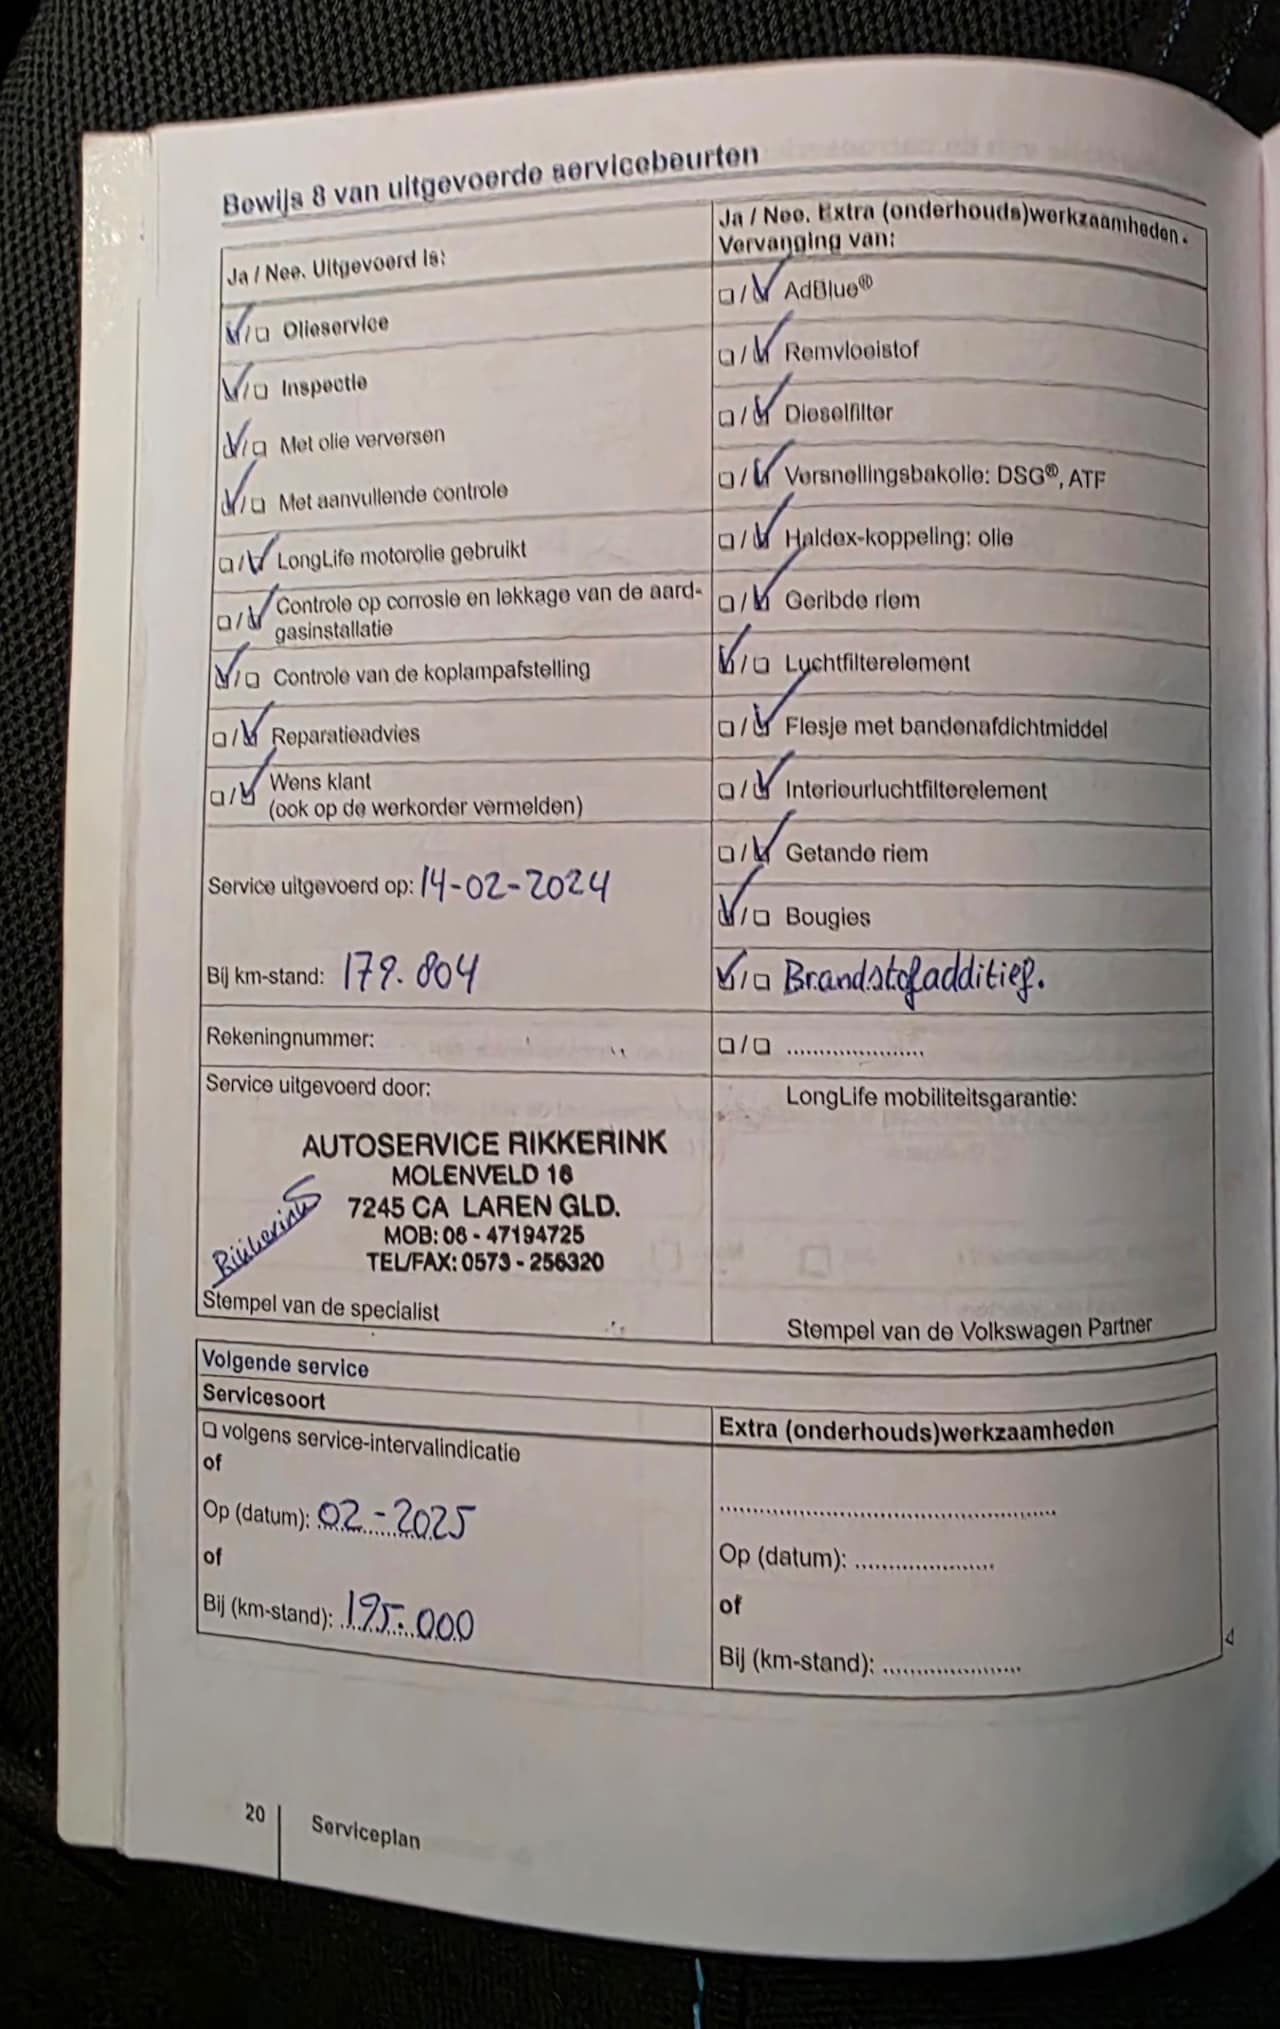 Bewijs 8 van uitgevoerde servicebeurten
Ja / Nee. Uitgevoerd is:
☑/☐ Olieservice
☑/☐ Inspectie
☑/☐ Met olie verversen
☑/☐ Met aanvullende controle
☐/☑ LongLife motorolie gebruikt
☐/☑ Controle op corrosie en lekkage van de aard-
gasinstallatie
☑/☐ Controle van de koplampafstelling
☐/☑ Reparatieadvies
☐/☑ Wens klant
(ook op de werkorder vermelden)
Service uitgevoerd op: 14-02-2024
Bij km-stand: 179.804
Rekeningnummer:
Service uitgevoerd door:
AUTOSERVICE RIKKERINK
MOLENVELD 16
7245 CA LAREN GLD.
MOB: 06 - 47194725
TEL/FAX: 0573 - 256320
Rikkerink
Stempel van de specialist
Ja / Nee. Extra (onderhouds)werkzaamheden.
Vervanging van:
☐/☑ AdBlue®
☐/☑ Remvloeistof
☐/☑ Dieselfilter
☐/☑ Versnellingsbakolie: DSG®, ATF
☐/☑ Haldex-koppeling: olie
☐/☑ Geribde riem
☑/☐ Luchtfilterelement
☐/☑ Flesje met bandenafdichtmiddel
☐/☑ Interieurluchtfilterelement
☐/☑ Getande riem
☑/☐ Bougies
☑/☐ Brandstofadditief.
☐/☐ ......................
LongLife mobiliteitsgarantie:
Stempel van de Volkswagen Partner
Volgende service
Servicesoort
☐ volgens service-intervalindicatie
of
Op (datum): 02-2025
of
Bij (km-stand): 195.000
Extra (onderhouds)werkzaamheden
......................................................
Op (datum): ......................
of
Bij (km-stand): ......................
20
Serviceplan